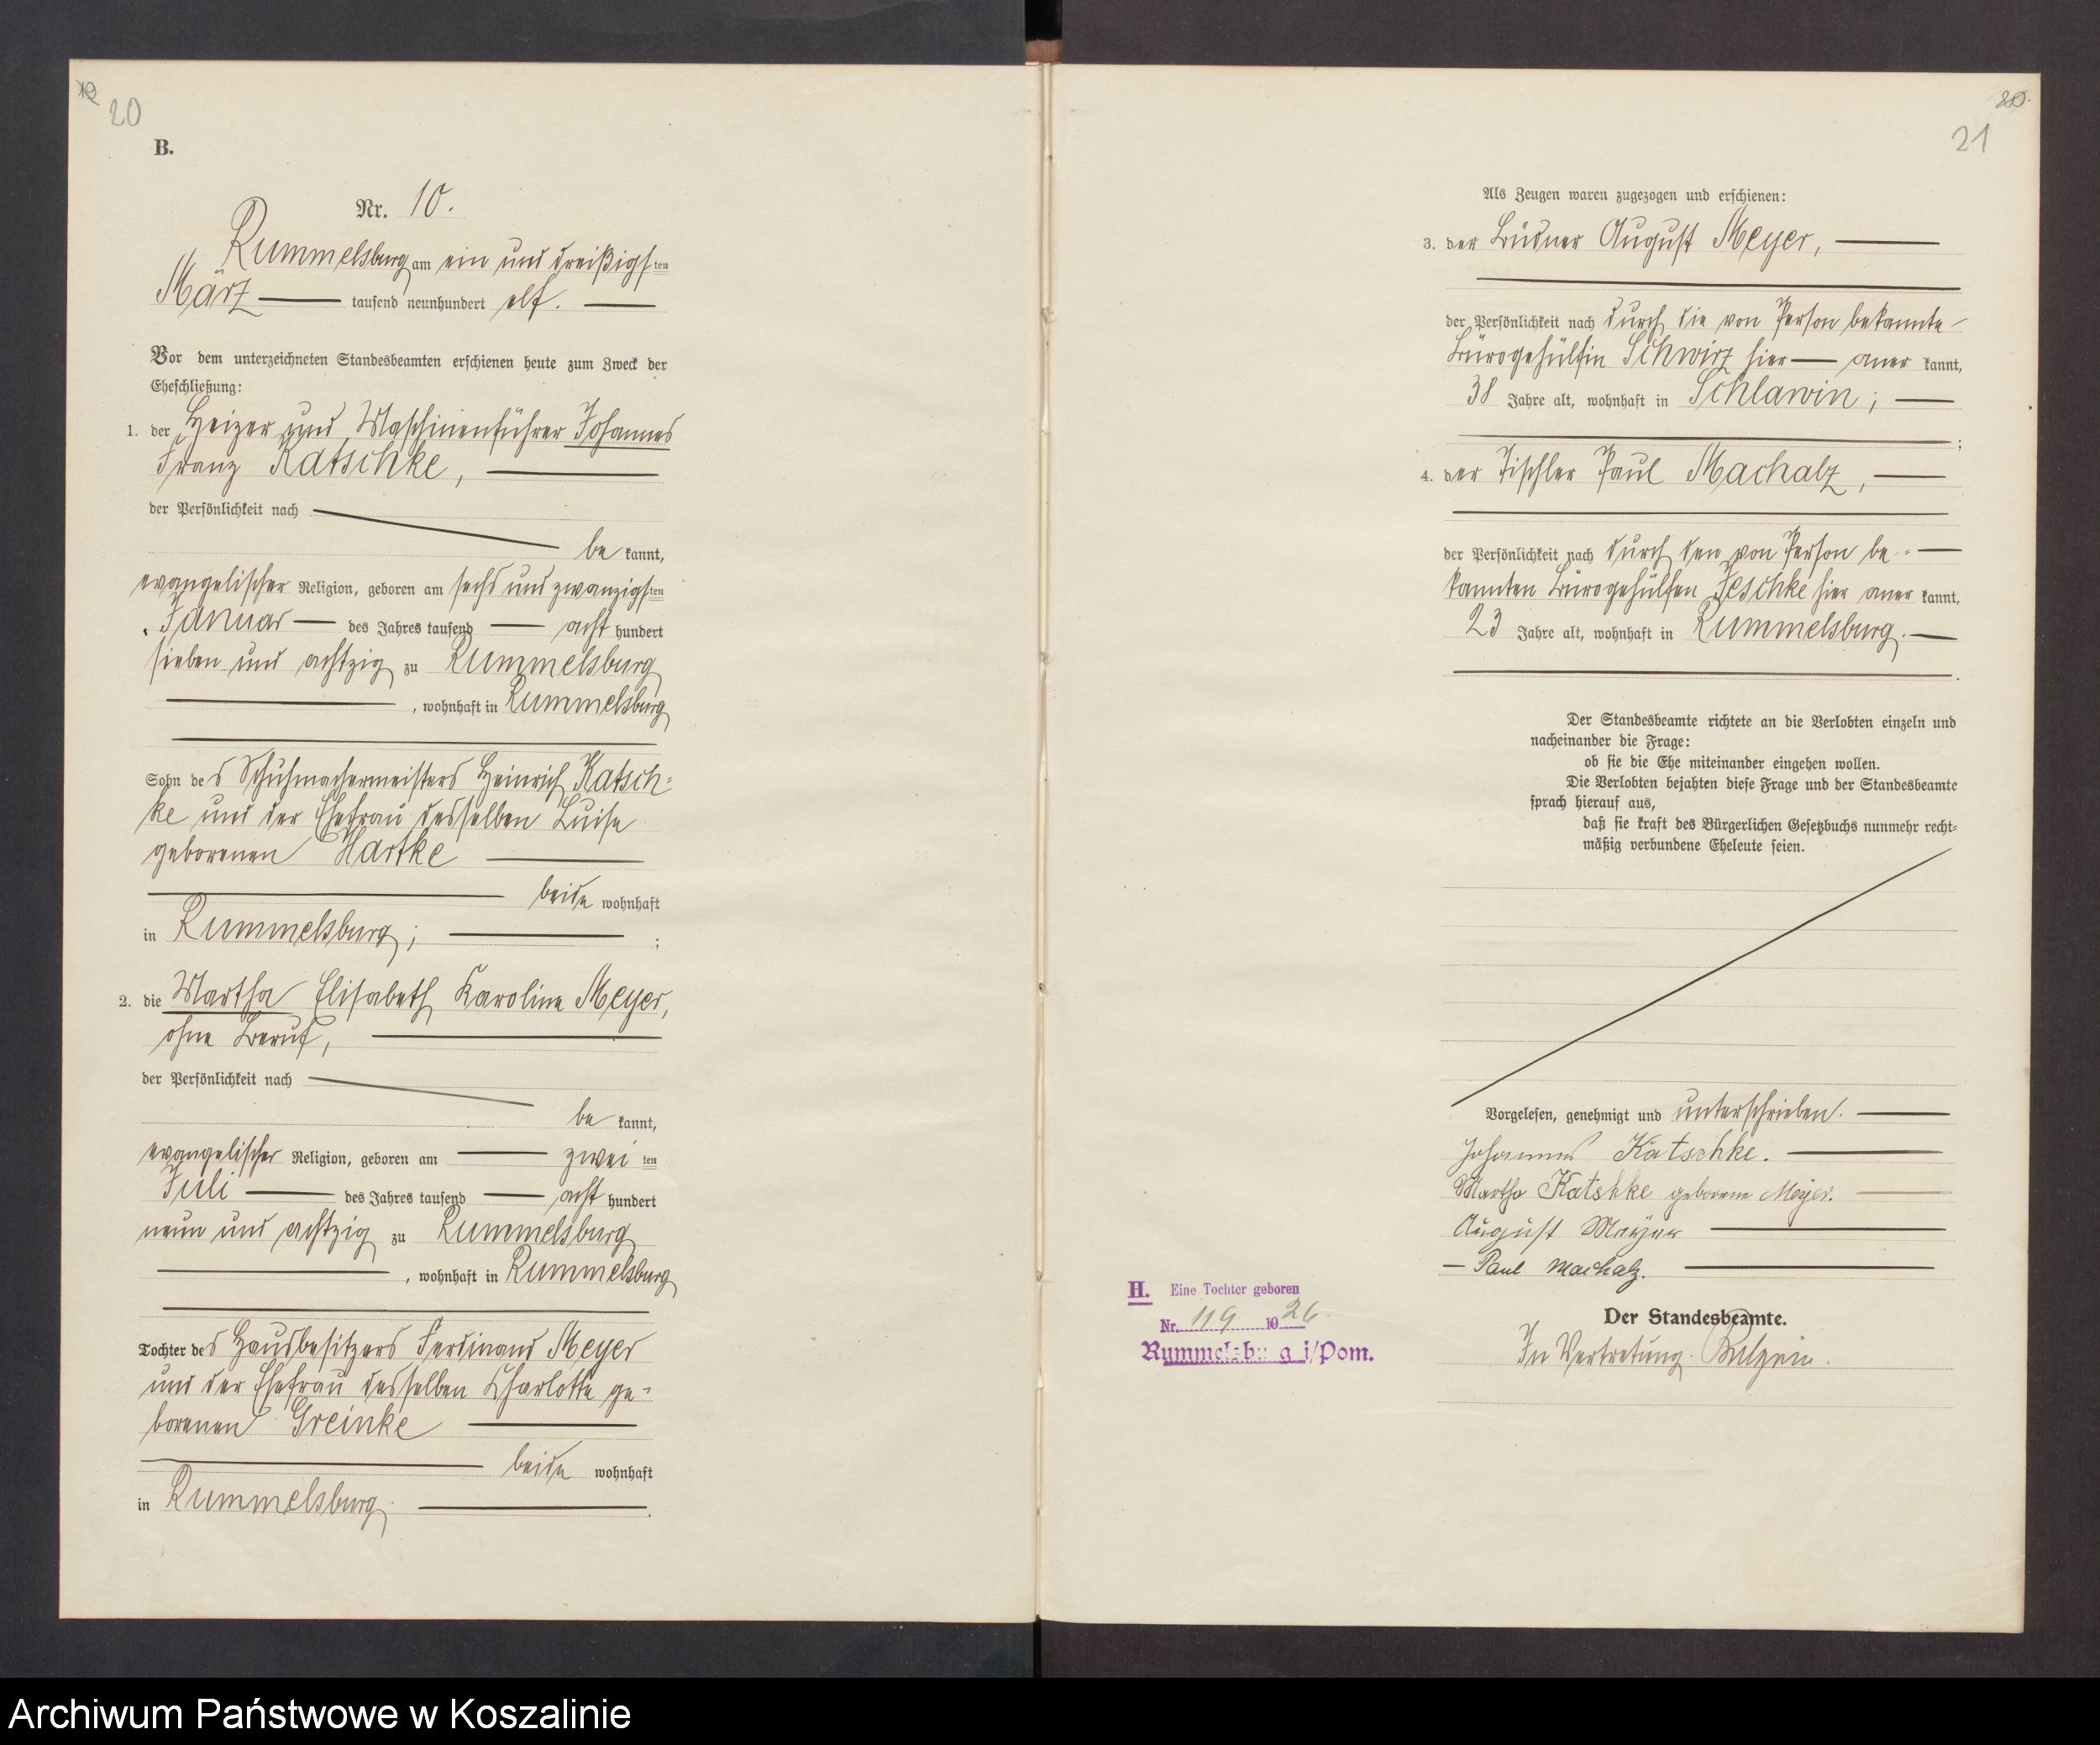 20
B.
Nr. 10.
Rummelsburg am ein und dreißigsten
März tausend neunhundert elf.
Vor dem unterzeichneten Standesbeamten erschienen heute zum Zweck der
Eheschließung:
1. der Heizer und Maschinenführer Johannes
Franz Katschke,
der Persönlichkeit nach
be kannt,
evangelischer Religion, geboren am sechs und zwanzigsten
Januar des Jahres tausend acht hundert
sieben und achtzig zu Rummelsburg
, wohnhaft in Rummelsburg
Sohn des Schuhmachermeisters Heinrich Katsch=
ke und der Ehefrau desselben Luise
geborenen Hartke
beide wohnhaft
in Rummelsburg; ;
2. die Martha Elisabeth Karoline Meyer,
ohne Beruf,
der Persönlichkeit nach
be kannt,
evangelischer Religion, geboren am zwei ten
Juli des Jahres tausend acht hundert
neun und achtzig zu Rummelsburg
, wohnhaft in Rummelsburg
Tochter des Hausbesitzers Ferdinand Meyer
und der Ehefrau desselben Charlotte ge=
borenen Greinke
beide wohnhaft
in Rummelsburg.
21
Als Zeugen waren zugezogen und erschienen:
3. der Büdner August Meyer,
der Persönlichkeit nach durch die von Person bekannte
Bürogehülfin Schwirz hier aner kannt,
38 Jahre alt, wohnhaft in Schlawin;
;
4. der Tischler Paul Machalz,
der Persönlichkeit nach durch den von Person be=
kannten Bürogehülfen Jeschke hier aner kannt,
23 Jahre alt, wohnhaft in Rummelsburg.
Der Standesbeamte richtete an die Verlobten einzeln und
nacheinander die Frage:
ob sie die Ehe miteinander eingehen wollen.
Die Verlobten bejahten diese Frage und der Standesbeamte
sprach hierauf aus,
daß sie kraft des Bürgerlichen Gesetzbuchs nunmehr recht=
mäßig verbundene Eheleute seien.
Vorgelesen, genehmigt und unterschrieben.
Johannes Katschke.
Martha Katshke geborene Meyer.
August Meyer
Paul Machalz.
Der Standesbeamte.
In Vertretung.
H. Eine Tochter geboren
Nr. 119 1926
Rummelsburg i/Pom.
Archiwum Państwowe w Koszalinie